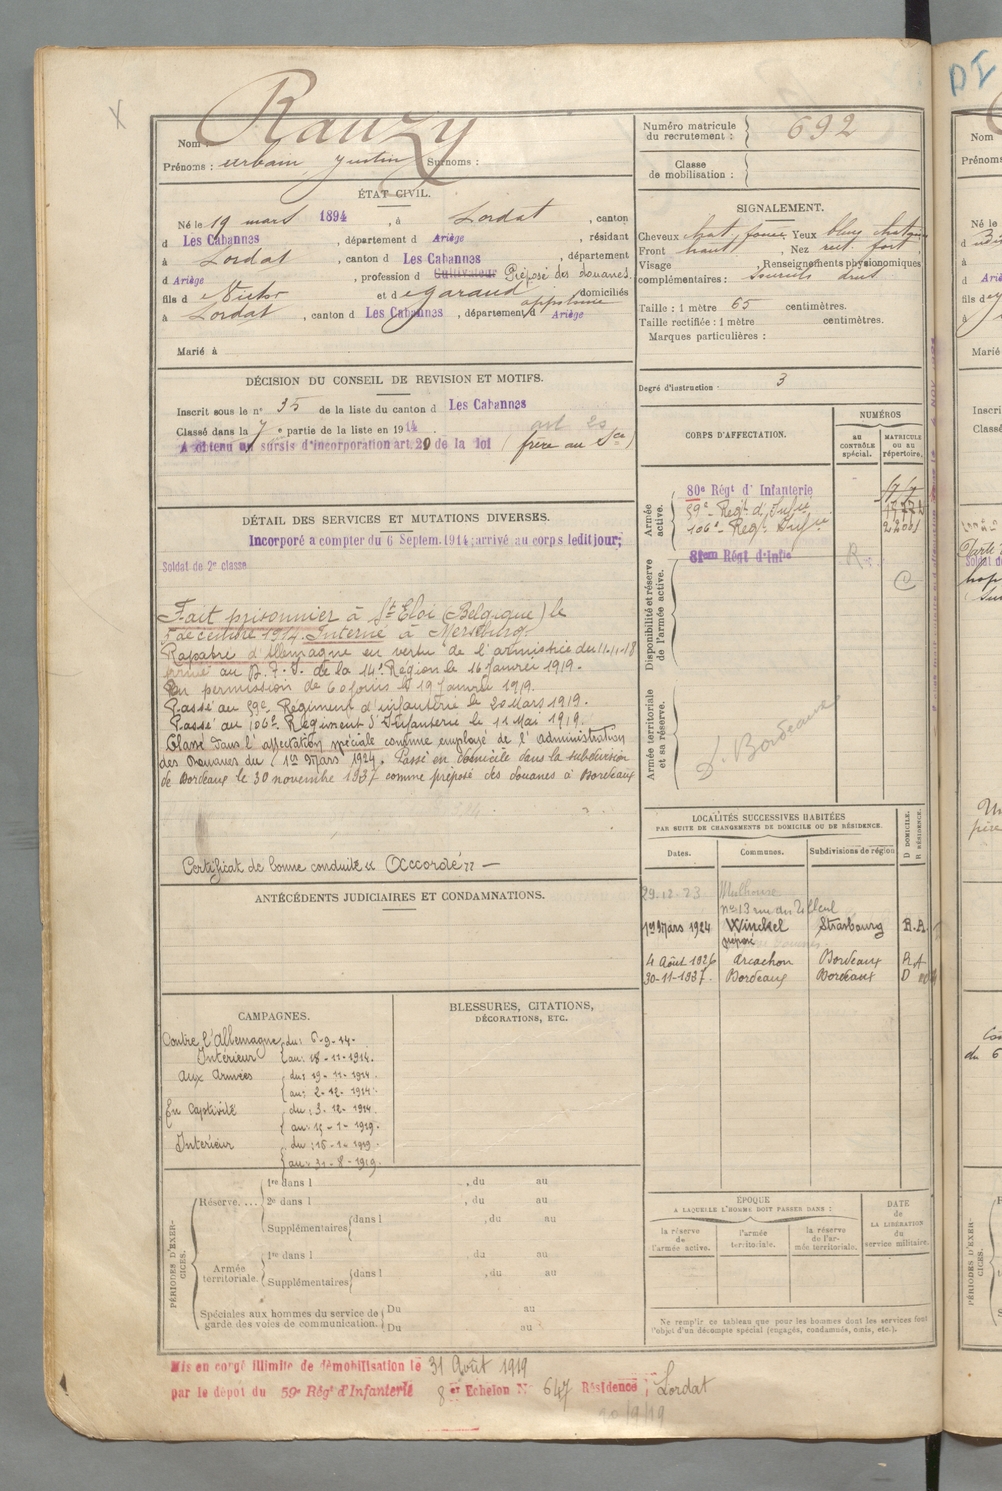 Nom : Rauzy
Prénoms : urbain Justin Surnoms :
ÉTAT CIVIL.
Né le 19 mars 1894, à Lordat, canton
d Les Cabannes, département d Ariège, résidant
à Lordat, canton d Les Cabannes, département
d Ariège, profession d Cultivateur Préposé des douanes,
fils d Victor et d egaraud appolonie domiciliés
à Lordat, canton d Les Cabannes, département d Ariège
Marié à
DÉCISION DU CONSEIL DE REVISION ET MOTIFS.
Inscrit sous le n° 35 de la liste du canton d Les Cabannes
Classé dans la 7 e partie de la liste en 1914. art 20
A obtenu un sursis d'incorporation art. 20 de la loi (frère au Sce)
DÉTAIL DES SERVICES ET MUTATIONS DIVERSES.
Incorporé a compter du 6 Septem. 1914; arrivé au corps ledit jour;
Soldat de 2e classe
Fait prisonnier à St Eloi (Belgique) le
3 décembre 1914. Interné à Merseburg
Rapatrié d'Allemagne en vertu de l'armistice du 11-11-18
arrivé au D. T. I. de la 14e Région le 16 Janvier 1919.
En permission de 60 jours le 19 Janvier 1919.
Passé au 59e Régiment d'infanterie le 20 Mars 1919.
Passé au 106e Régiment d'Infanterie le 11 Mai 1919.
Classé dans l'affectation spéciale comme employé de l'administration
des Douanes du 1er Mars 1924. Passé en domicile dans la subdivision
de Bordeaux le 30 novembre 1937 comme préposé des douanes à Bordeaux
Certificat de bonne conduite « Accordé » —
ANTÉCÉDENTS JUDICIAIRES ET CONDAMNATIONS.
CAMPAGNES.
Contre l'Allemagne du : 6-9-14-
Intérieur au : 18-11-1914.
aux Armées du : 19-11-1914.
au : 2-12-1914.
En Captivité du : 3-12-1914.
au : 15-1-1919.
Intérieur du : 16-1-1919.
au : 31-8-1919.
BLESSURES, CITATIONS,
DÉCORATIONS, ETC.
PÉRIODES D'EXERCICES.
Réserve.... 1re dans l , du au
2e dans l , du au
Supplémentaires dans l , du au
Armée territoriale. 1re dans l du au
Supplémentaires dans l , du au
Spéciales aux hommes du service de Du au
garde des voies de communication. Du au
Mis en congé illimité de démobilisation le 31 Août 1919
par le dépôt du 59e Régt d'Infanterie 8 er Echelon N° 647 Résidence : Lordat
20/9/19
Numéro matricule
du recrutement : 692
Classe
de mobilisation :
SIGNALEMENT.
Cheveux chat. foncé Yeux bleu chatain
Front haut, Nez rect. fort,
Visage , Renseignements physionomiques
complémentaires : sourcils droit
Taille : 1 mètre 65 centimètres.
Taille rectifiée : 1 mètre centimètres.
Marques particulières :
Degré d'instruction : 3
CORPS D'AFFECTATION.
NUMÉROS
AU CONTRÔLE spécial.
MATRICULE OU AU répertoire.
Armée active.
80e Régt d'Infanterie
59e Regt d'Infrie
106e Regt Infrie
Disponibilité et réserve de l'armée active.
81eme Régt d'Infie
Armée territoriale et sa réserve.
D. Bordeaux
LOCALITÉS SUCCESSIVES HABITÉES
PAR SUITE DE CHANGEMENTS DE DOMICILE OU DE RÉSIDENCE.
Dates. Communes. Subdivisions de région D DOMICILE. R RÉSIDENCE.
29.12.23 Mulhouse
n° 13 rue du Tilleul
1er Mars 1924 Winckel Strasbourg R.A.
préposé
4 Août 1926 Arcachon Bordeaux R.A
30-11-1937. Bordeaux Bordeaux D
ÉPOQUE
A LAQUELLE L'HOMME DOIT PASSER DANS :
la réserve de l'armée active.
l'armée territoriale.
la réserve de l'armée territoriale.
DATE de LA LIBÉRATION du service militaire.
Ne remplir ce tableau que pour les hommes dont les services font
l'objet d'un décompte spécial (engagés, condamnés, omis, etc.).